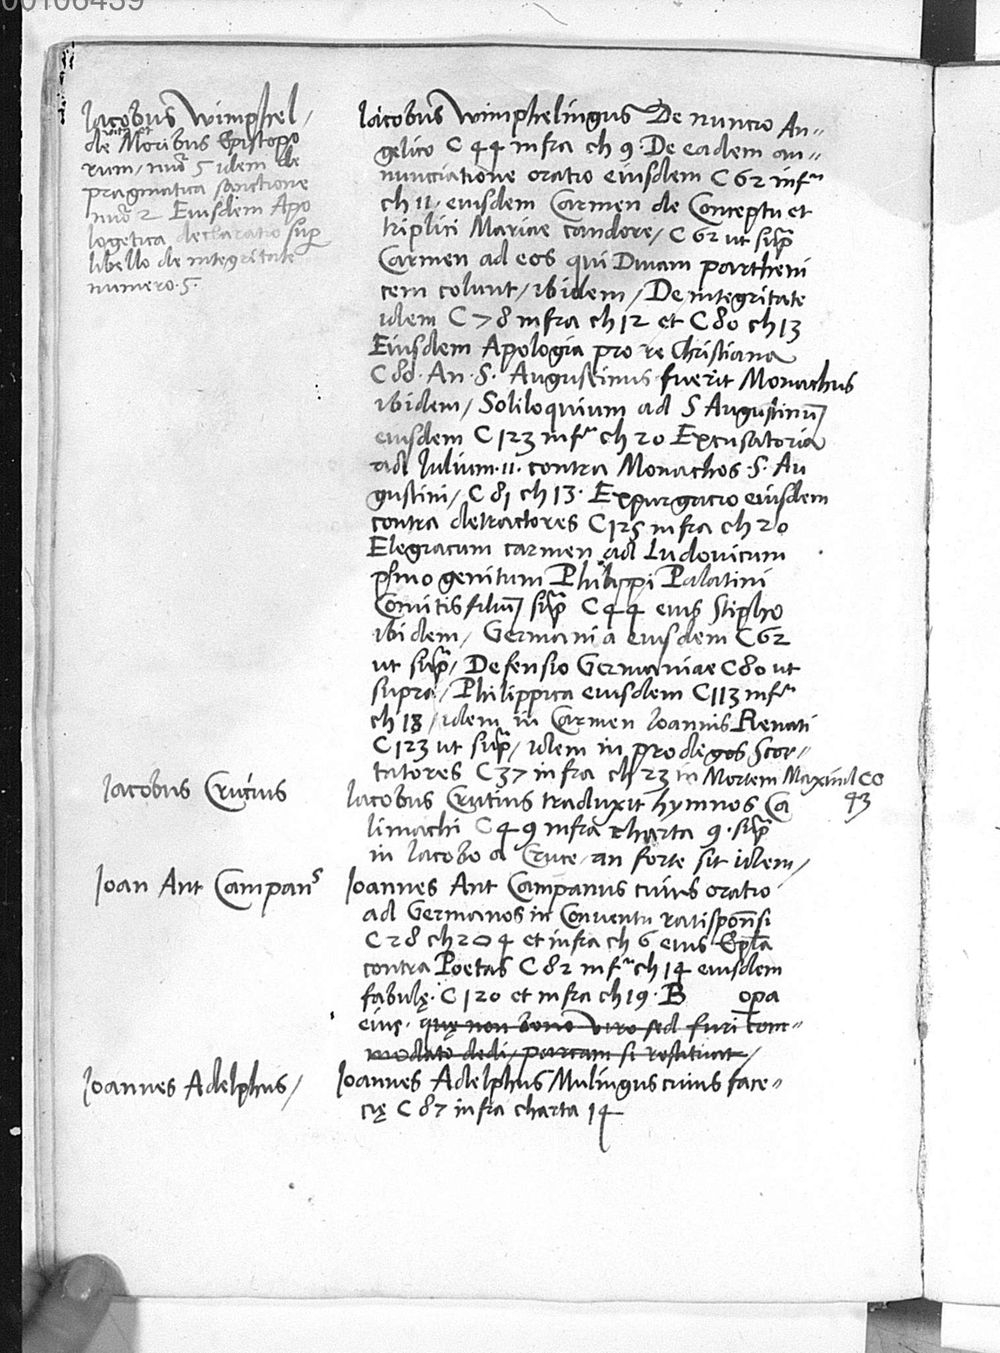 00106439
Iacobus Wimphel/
de vita et Moribus Episcopo
rum/ nu̅o 5 idem de
pragmatica sanctione
nu̅o 2 Eiusdem Apo
logetica declaratio sup̅
libello de integritate
numero. 5.
Iacobus Wimphelingus De nuncio An=
gelico C 44 infra ch 9. De eadem an=
nunciatione oratio eiusdem C 62 infra
ch 11, eiusdem Carmen de Conceptu et
triplici Mariae candore/ C 62 ut sup̅
Carmen ad eos qui Divam partheni
cem colunt/ ibidem/ De integritate
idem C 78 infra ch 12 et C 80 ch 13
Eiusdem Apologia pro re Christiana
C 80. An. S. Augustinus fuerit Monachus
ibidem/ Soliloquium ad S Augustinu̅
eiusdem C 123 infra ch 20 Excusatoria
ad Iulium .11. contra Monachos .S. Au
gustini/ C 81 ch 13. Expurgatio eiusdem
contra detractores C 125 infra ch 20
Elegiacum carmen ad Ludovicum
p̅mogenitum Philippi Palatini
Comitis filiu̅ sup̅ C 44 eius Stipho
ibidem/ Germania eiusdem C 62
ut sup̅/ Defensio Germaniae C 80 ut
supra/ Philippica eiusdem C 113 infra
ch 18/ idem in Carmen Ioannis Renati
C 123 ut sup̅/ idem in prodegos Scor=
tatores C 37 infra ch 23 in Mortem Maximil CO
93
Iacobus Crucius
Iacobus Crutius traduxit hymnos Ca
limachi C 49 infra charta 9. sup̅
in Iacobo a Cruce. an forte sit idem/
Ioan Ant Campanus
Ioannes Ant Campanus cuius oratio
ad Germanos in Conventu ratispon̅si
C 28 ch 204 et infra ch 6 eius Epl̅a
contra Poetas C 82 infra ch 14 eiusdem
fabulę. C 120 et infra ch 19. B opa
eius. quę non bono viro sed furi com=
modato dedi/ parcam si restituat/
Ioannes Adelphus/
Ioannes Adelphus Mulingus cuius face=
cię C 87 infra charta 14